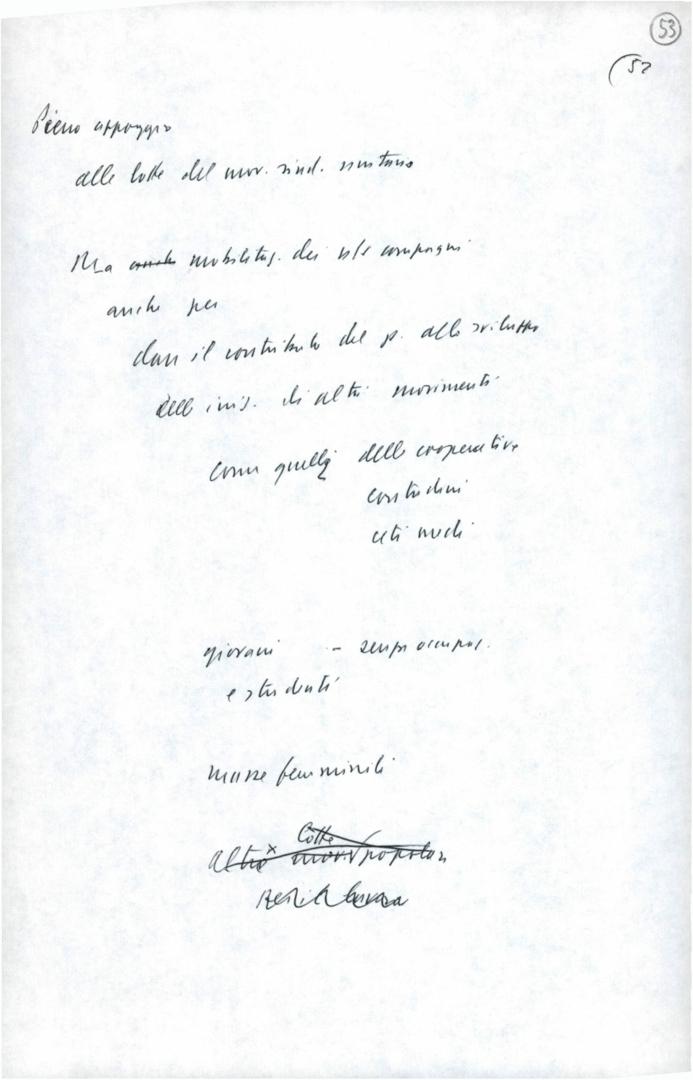 53
(52
Pieno appoggio
alle lotte del mov. sind. unitario
Ma anche mobilitaz. dei n/s compagni
anche per
dare il contributo del p. allo sviluppo
dell'iniz. di altri movimenti
come quelli delle cooperative
contadini
ceti medi
giovani – senza occupaz.
e studenti
masse femminili
altre lotte mov. popolari